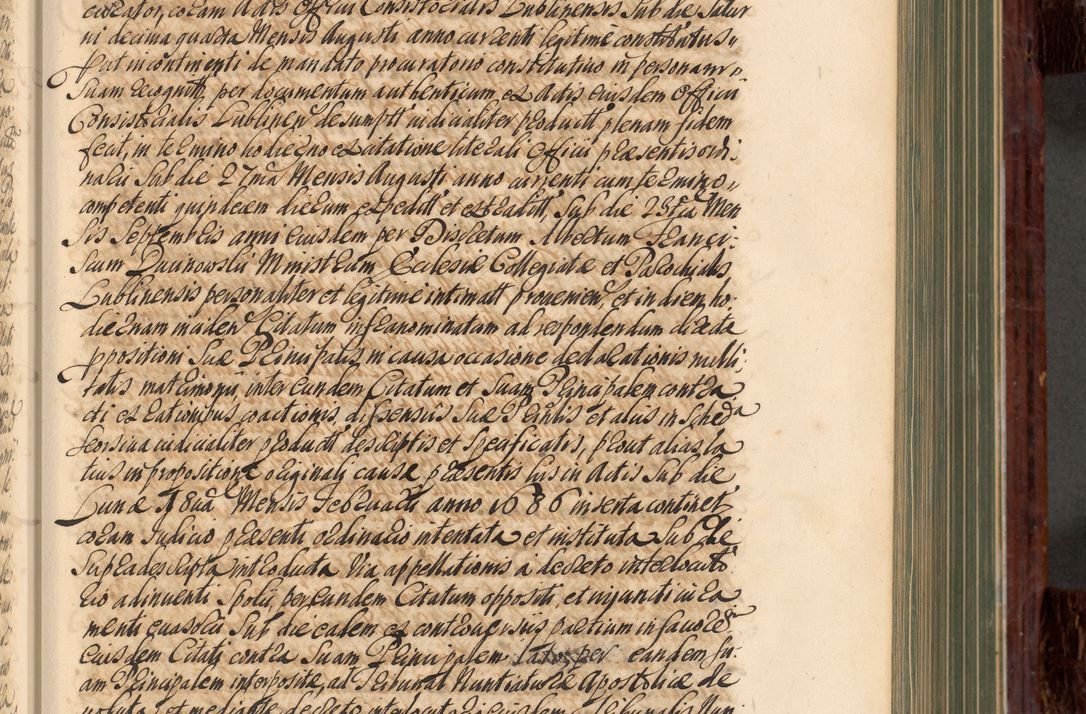 curator, coram Actis Officii Consistorialis Lublinensis sub die Satur
ni decima quarta Mensis Augusti anno currenti legitime constitutus,,
prout in continenti de mandato procuratorio constitutivo in personam,,
Suam recognitt, per documentum authenticum ex Actis eiusdem Officii
Consistorialis Lublinen desumptt iudicialiter productt plenam fidem
fecit, in termino hodierno ex citatione literali Officii præsentis ordi:
narii sub die 27ma Mensis Augusti anno currenti cum termino,,
competenti quindecem dierum expeditt et extraditt, sub die 23tia Men
sis Septembris anni eiusdem per Discretum Albertum Franci:
scum Ministrum Ecclesiæ Collegiatæ et Parochialis
Lublinensis personaliter et legitime intimatt provenien, et in diem ho
diernam Citatum infranominatum ad respondendum directe
ppositioni Suæ Principalis in causa occasione declarationis nulli:
tatis matrimonii, inter eundem Citatum et Suam Principalem contra
cti ex rationibus coactionis, dissensus Suæ Prinlis et aliis in Scheda
seorsiva iudicialiter productt descriptis et specificatis, prout alias la
tius in propositione originali causæ præsentis his in Actis sub die
Lunæ 18va Mensis Februarii anno 1686 inserta continet,
coram Judicio præsenti ordinario intentata et instituta sub die
supradescripta introducta Via appellationis a decreto interlocuto
rio adinventi Spolii, per eundem Citatum oppositi, et iniuncti iura
menti sub die eadem ex controversiis partium in favorem
eiusdem Citati contra Suam Principalem lato, per eandem su
am Principalem interposita, ad Tribunal Nuntiaturæ Apostolicæ de
voluta, et mediante decreto interlocutorio eiusdem Tribunalis Nun